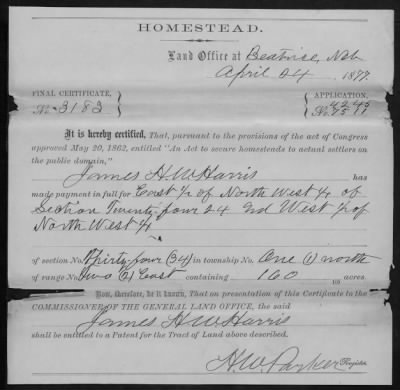 HOMESTEAD.
Land Office at Beatrice, Neb
April 24 1877.
FINAL CERTIFICATE, APPLICATION,
No. 3182
It is hereby certified, That, pursuant to the provisions of the act of Congress
approved May 20, 1862, entitled "An Act to secure homesteads to actual settlers on
the public domain,"
James H W Harris has
made payment in full for East ½ of North West ¼ of
Section Twenty-four 24 and West ½ of
North West ¼
of section No. Thirty-four (34) in township No. One (1) north
of range No. Two (2) East containing 160 acres.
Now, therefore, be it known, That on presentation of this Certificate to the
COMMISSIONER OF THE GENERAL LAND OFFICE, the said
James H W Harris
shall be entitled to a Patent for the Tract of Land above described.
H W Parker Register.